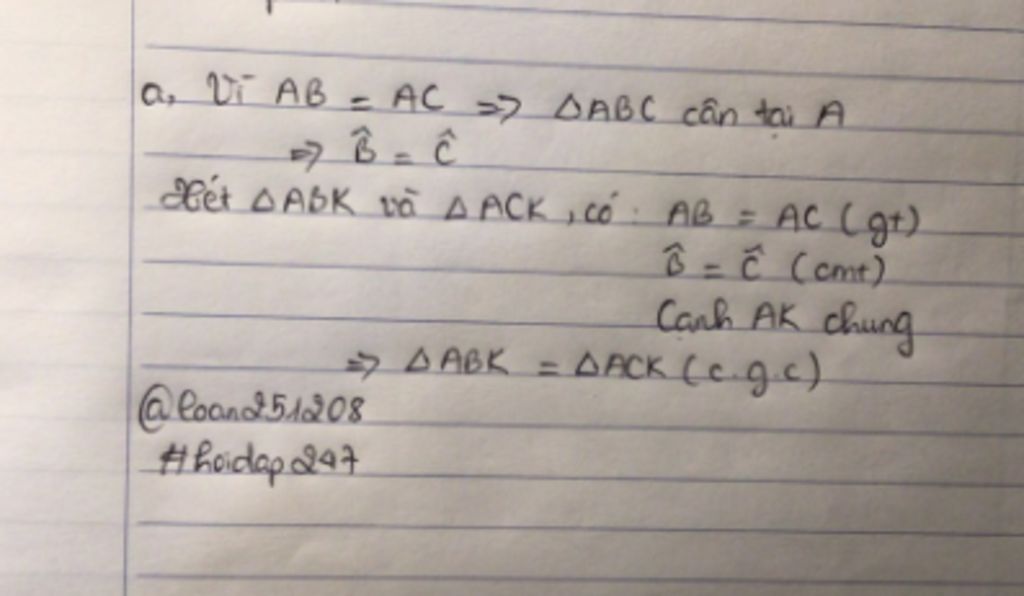 a, Vì AB = AC => ΔABC cân tại A
=> B̂ = Ĉ
Xét ΔABK và ΔACK, có: AB = AC (gt)
B̂ = Ĉ (cmt)
Cạnh AK chung
=> ΔABK = ΔACK (c.g.c)
@loan251208
#hoidap247